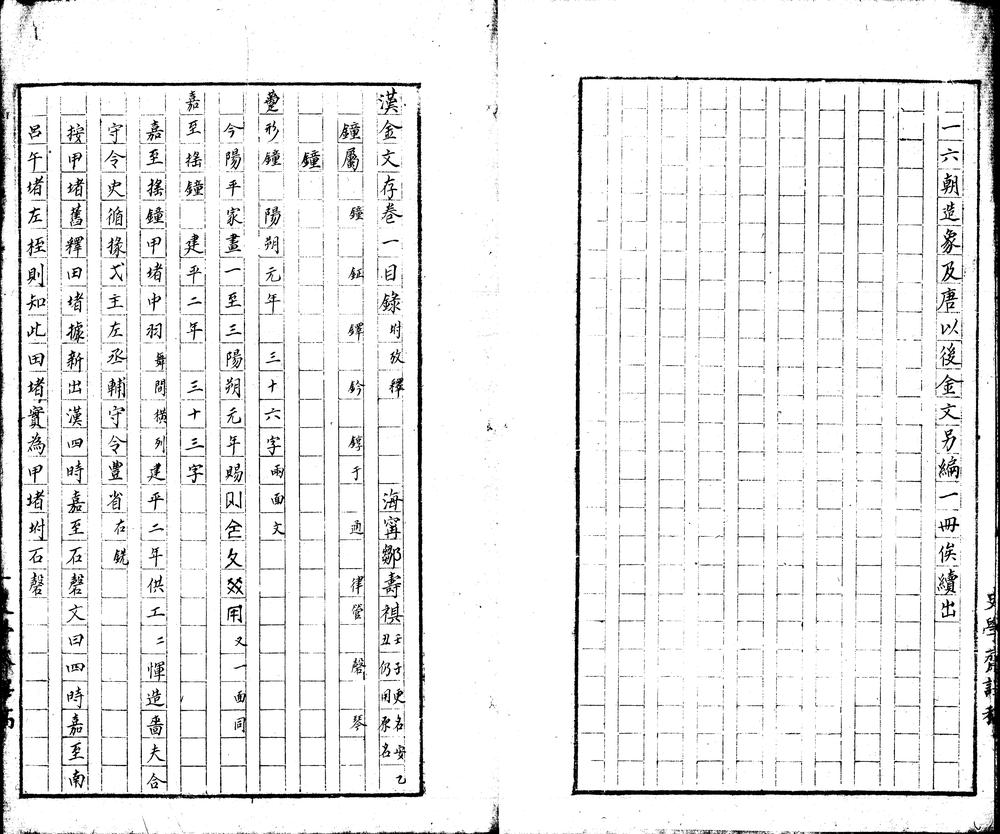 一六朝造象及唐以後金文另編一冊俟續出
漢金文存卷一目錄 坿攷釋 海寧鄒壽祺 壬子更名安乙丑仍用原名
鐘屬 鐘 鉦 鐸 鈐 錞于 通 律管 磬 琴
鐘
形鐘 陽朔元年 三十六字 兩面文
今陽平家畫一至三陽朔元年賜 又一面同
嘉至搖鐘 建平二年 三十三字
嘉至搖鐘甲堵中羽 舞間橫列 建平二年供工二惲造嗇夫合
守令史循掾弋主左丞輔守令豐省 在銑
按甲堵舊釋田堵據新出漢四時嘉至石磬文曰四時嘉至南
呂午堵左桎則知此田堵實為甲堵坿石磬